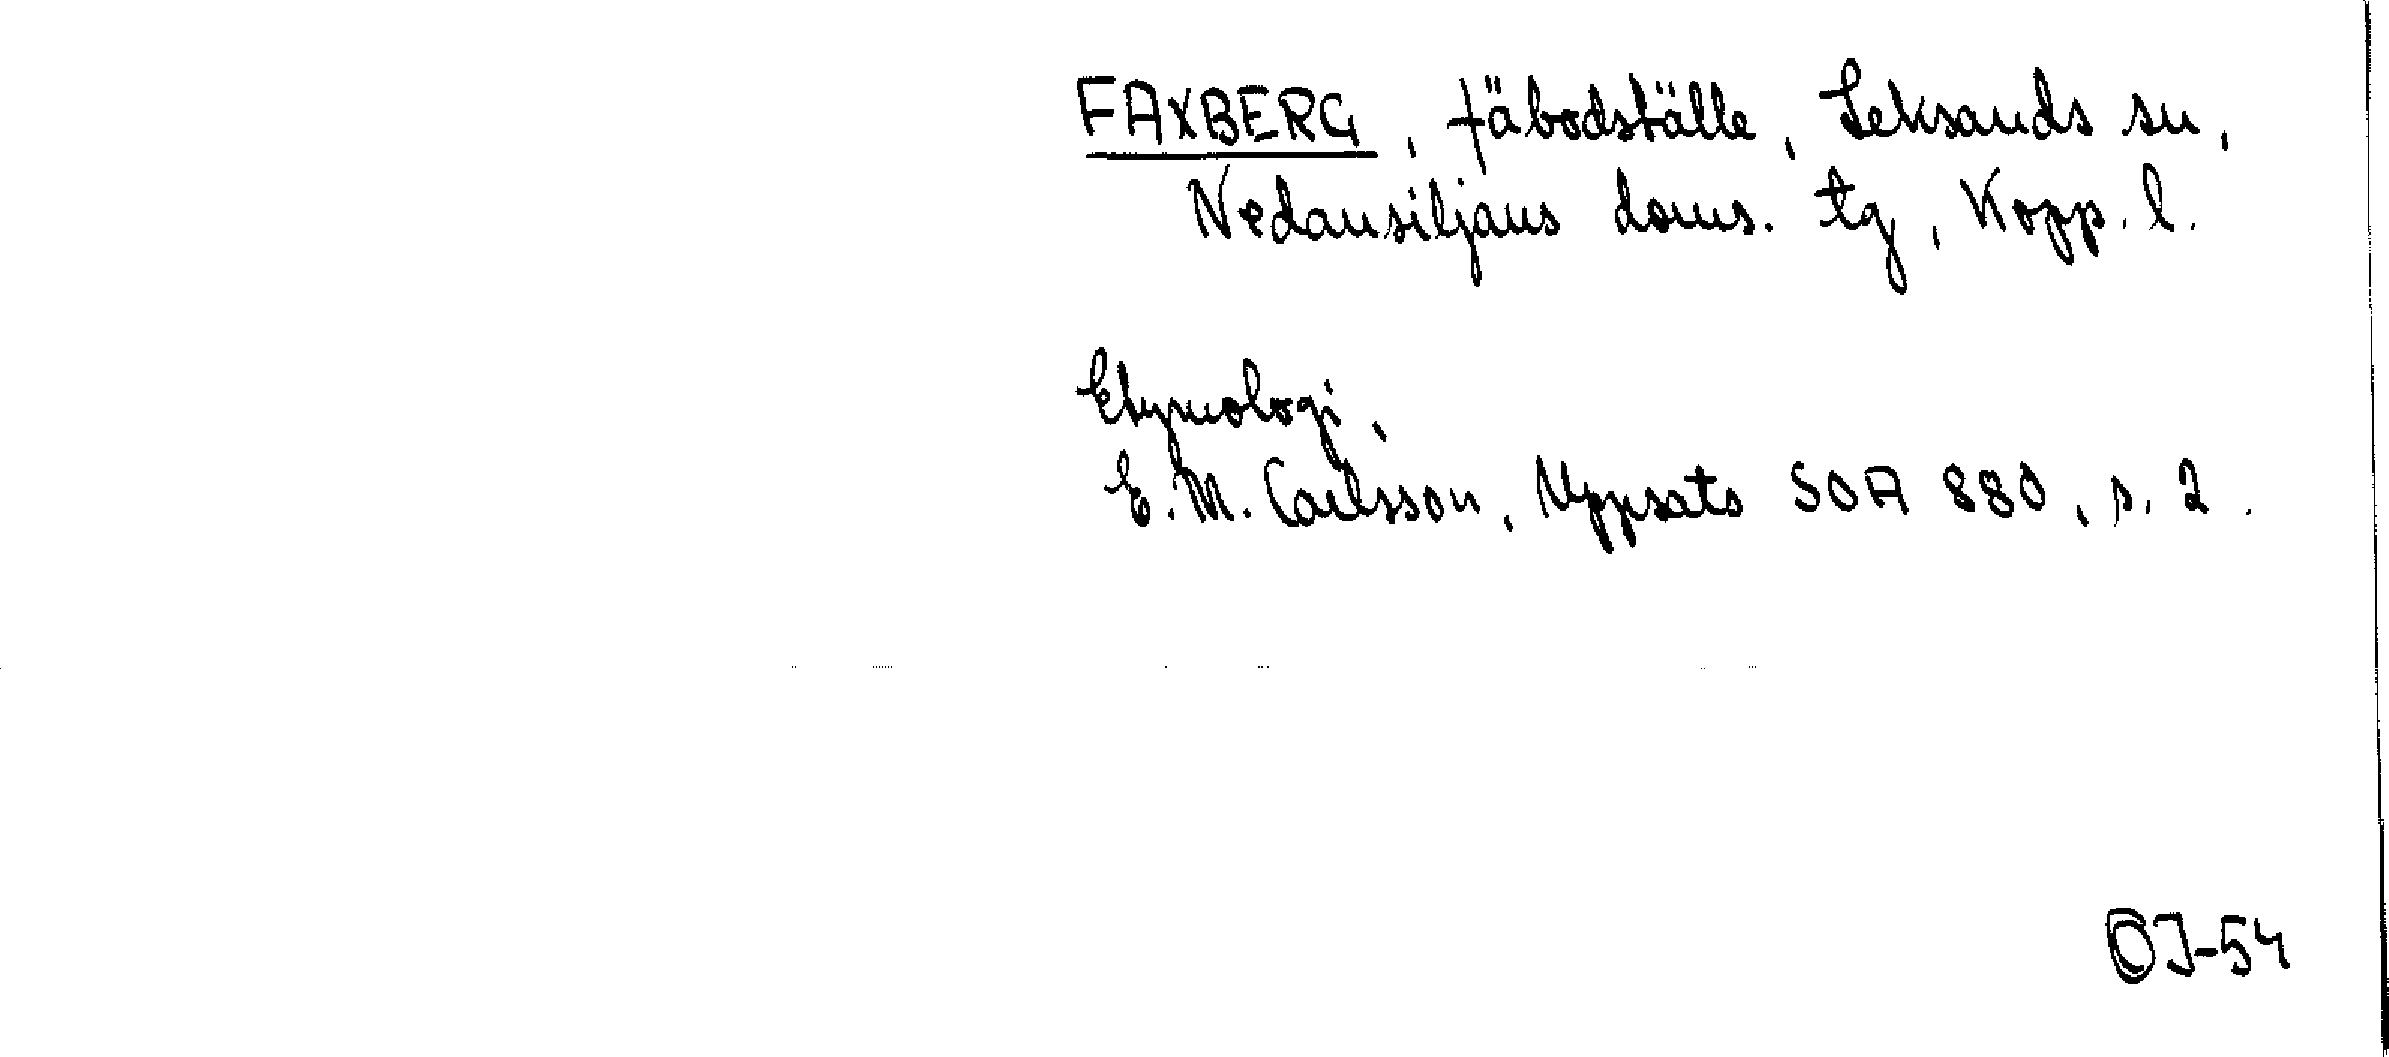 FAXBERG, fäbodställe, Leksands sn,
Nedansiljans doms. tg, Kopp. l.
Etymologi,
E. M. Carlsson, Uppsats SOA 880, s. 2.
OJ-54